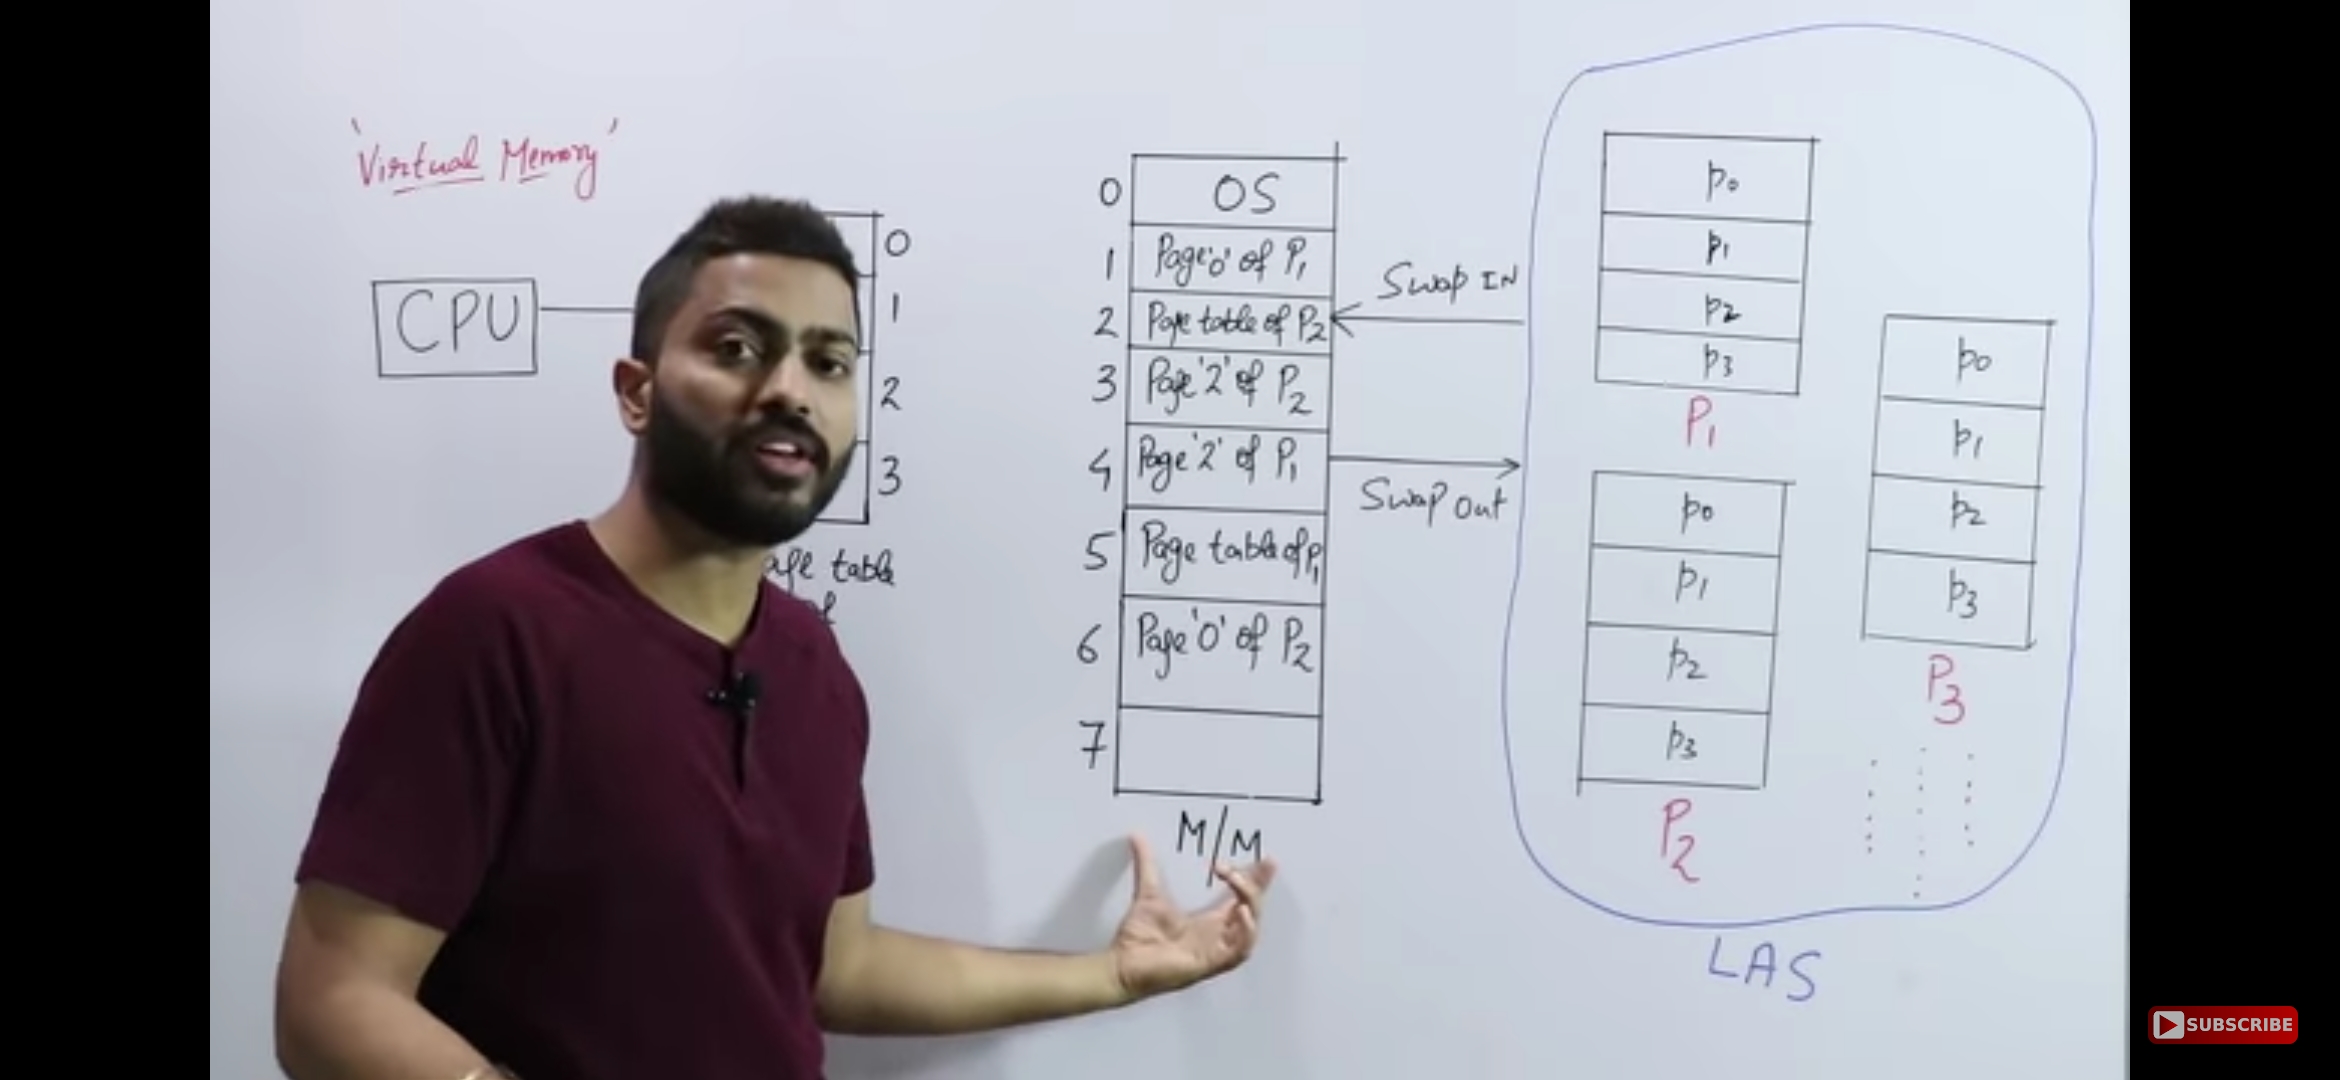 'Virtual Memory'
CPU
0
1
2
3
age table
0 OS
1 Page '0' of P1
2 Page table of P2
3 Page '2' of P2
4 Page '2' of P1
5 Page table of P1
6 Page '0' of P2
7
M/M
Swap IN
Swap Out
p0
p1
p2
p3
P1
p0
p1
p2
p3
P2
p0
p1
p2
p3
P3
LAS
SUBSCRIBE